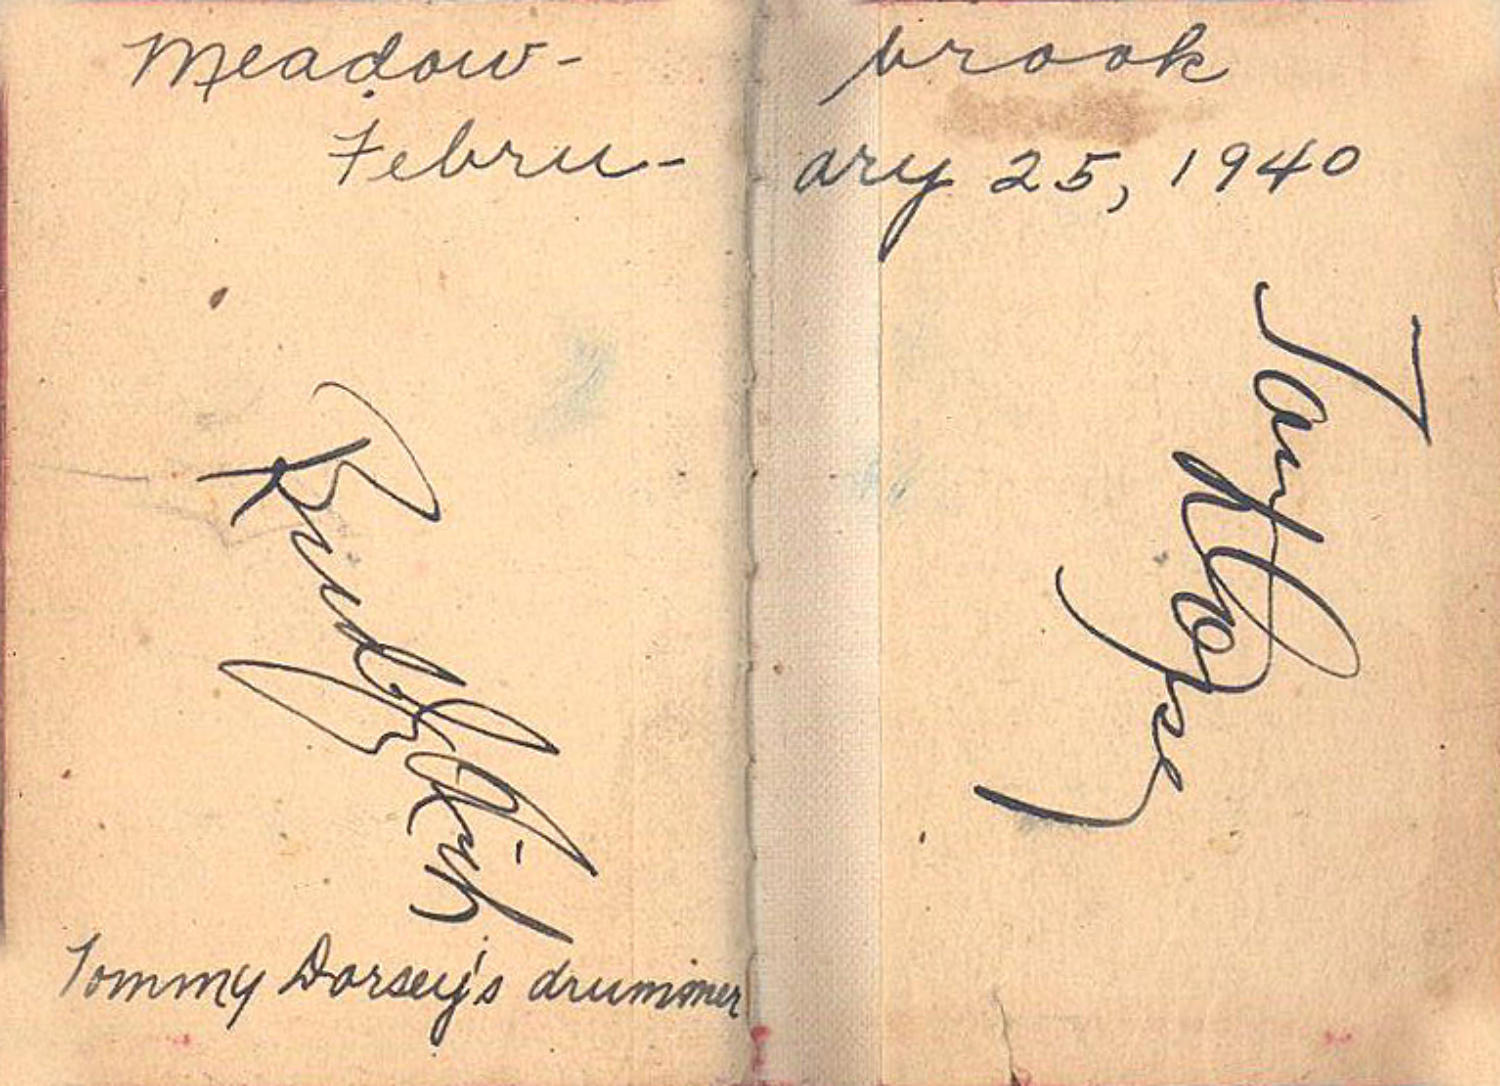 Meadow-brook
Febru-ary 25, 1940
Buddy Rich
Tommy Dorsey's drummer
Tommy Dorsey